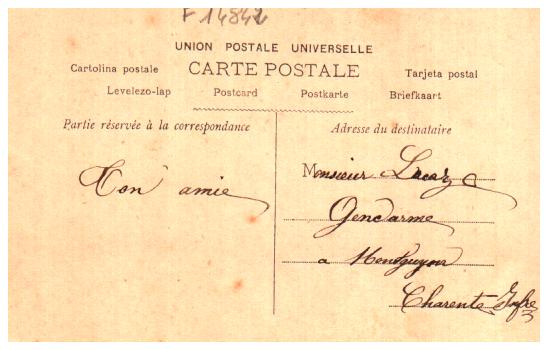 F 14842
UNION POSTALE UNIVERSELLE
Cartolina postale CARTE POSTALE Tarjeta postal
Levelezo-lap Postcard Postkarte Briefkaart
Partie réservée à la correspondance
Ton amie
Adresse du destinataire
Monsieur Lucaze
Gendarme
a Montguyon
Charente Infre